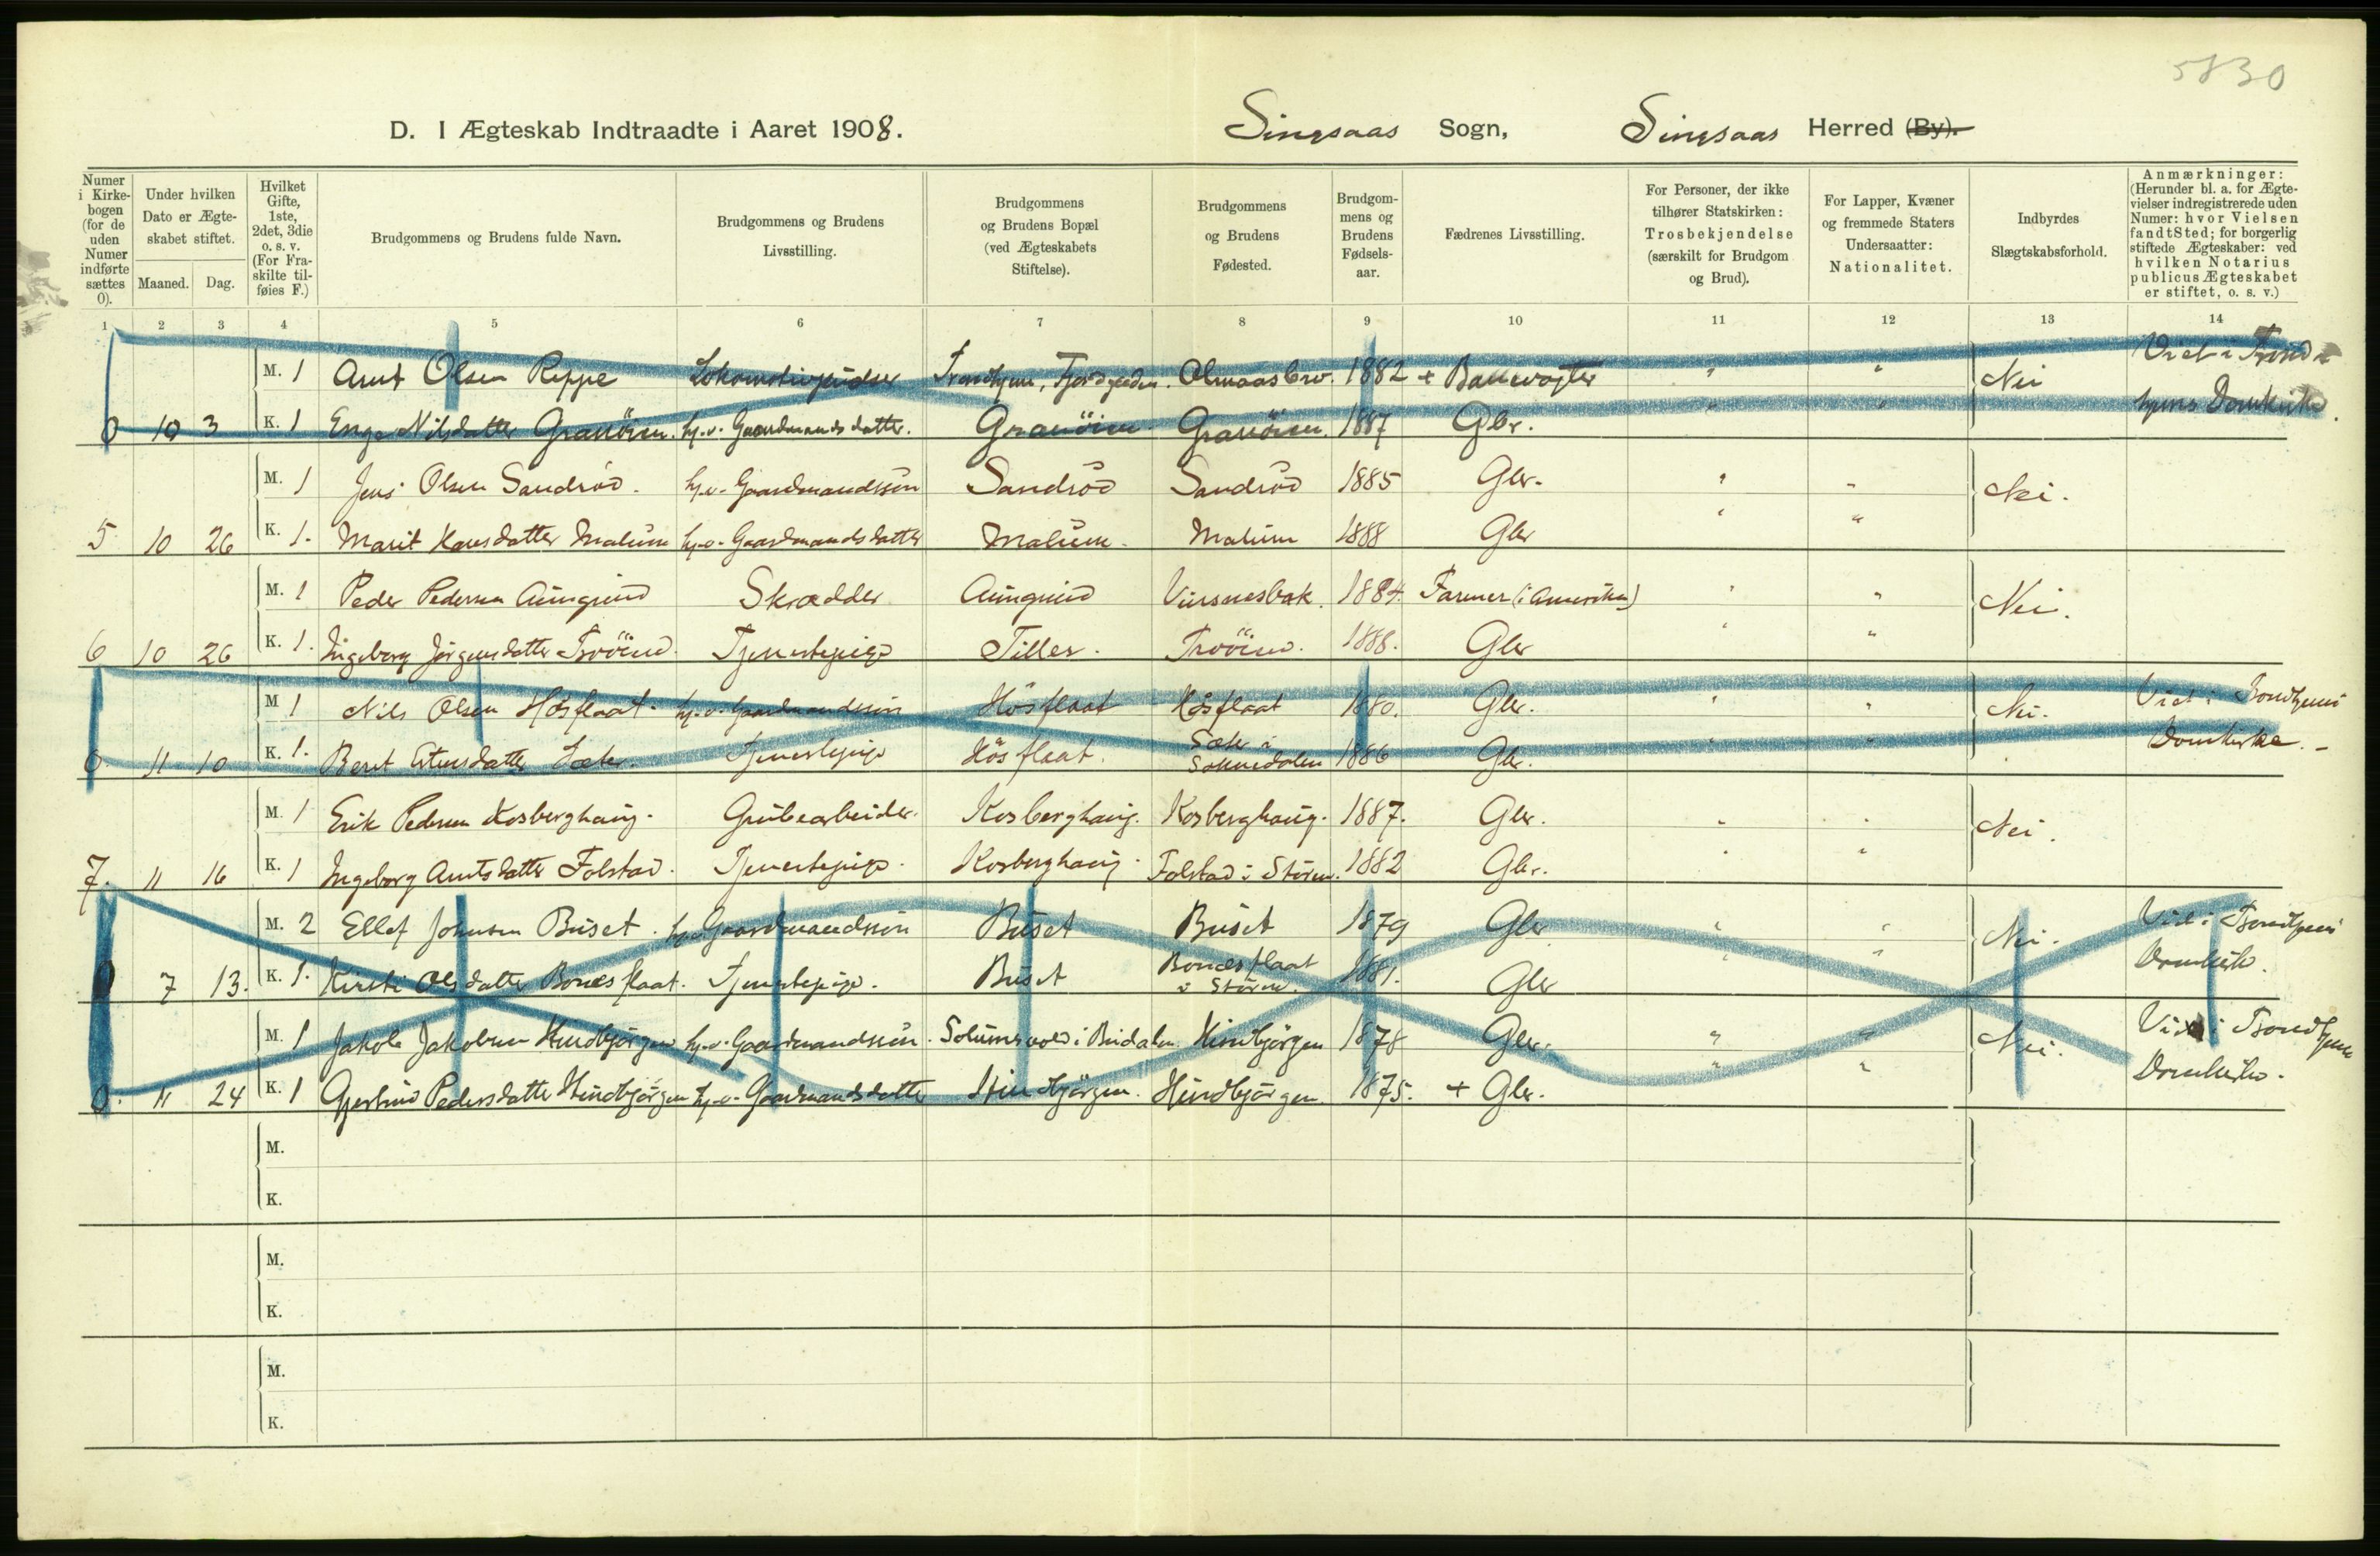 5830
D. I Ægteskab Indtraadte i Aaret 1908.
Singsaas Sogn, Singsaas Herred (By).
Numer i Kirke-bogen (for de uden Numer indførte sættes 0).
Under hvilken Dato er Ægte-skabet stiftet.
Maaned. Dag.
Hvilket Gifte, 1ste, 2det, 3die o. s. v. (For Fra-skilte til-føies F.)
Brudgommens og Brudens fulde Navn.
Brudgommens og Brudens Livsstilling.
Brudgommens og Brudens Bopæl (ved Ægteskabets Stiftelse).
Brudgommens og Brudens Fødested.
Brudgom-mens og Brudens Fødsels-aar.
Fædrenes Livsstilling.
For Personer, der ikke tilhører Statskirken: Trosbekjendelse (særskilt for Brudgom og Brud).
For Lapper, Kvæner og fremmede Staters Undersaatter: Nationalitet.
Indbyrdes Slægtskabsforhold.
Anmærkninger: (Herunder bl. a. for Ægte-vielser indregistrerede uden Numer: hvor Vielsen fandt Sted; for borgerlig stiftede Ægteskaber: ved hvilken Notarius publicus Ægteskabet er stiftet, o. s. v.)
1 2 3 4 5 6 7 8 9 10 11 12 13 14
M. 1 Arnt Olsen Reppe Lokomotivpudser Trondhjem, 1882 + Banevogter " " Nei Viet i Trond-
0 10 3 K. 1 Enge Nilsdatter Granöien. hj.v. Gaardmandsdatter. Granöien Granöien. 1887 Gbr. " " hjems Domkirke.
M. 1 Jens Olsen Sandröd. hj.v. Gaardmandssön Sandröd Sandröd 1885 Gbr. " " Nei.
5 10 26 K. 1. Marit Hansdatter Malum hj.v. Gaardmandsdatter Malum. Malum 1888 Gbr " "
M. 1 Peder Pedersen Aungrind Skrædder Aungrind Vinsnesbak. 1884. Farmer (i Amerika) " " Nei.
6 10 26 K. 1. Ingeborg Jörgensdatter Tjenestepige Tiller. 1888. Gbr " "
M 1 Nils Olsen Hösflaat. hj.v. Gaardmandssön Hösflaat Hösflaat 1880. Gbr. " " Nei. Viet i Trondhjems
0 11 10 K. 1. Beret Estensdatter Sæter. Tjenestepige Hösflaat. Sæter i Soknedalen 1886 Gbr. " " Domkirke. -
M. 1 Erik Pedersen Kosberghaug. Grubearbeider. Kosberghaug. Kosberghaug. 1887. Gbr. " " Nei.
7. 11 16 K. 1 Ingeborg Arntsdatter Folstad. Tjenestepige. Kosberghaug. Folstad i Stören. 1882 Gbr. " "
M. 2 Ellef Johnsen Buset. hj.v. Gaardmandssön Buset Buset 1879 Gbr " " Nei. Viet i Trondhjems
0 7 13. K. 1. Kirsti Olsdatter Bonesflaat. Tjenestepige. Buset Bonesflaat i Stören. 1881. Gbr " " Domkirke.
M. 1 Jakob Jakobsen Hindbjörgen hj.v. Gaardmandssön. Solumsvold i Budalen Hindbjörgen 1878 Gbr. " " Nei. Viet i Trondhjems
0. 11 24 K. 1 Gjertrud Pedersdatter Hindbjörgen hj.v. Gaardmandsdatter Hindbjörgen. Hindbjörgen. 1875. + Gbr. " " Domkirke.
M.
K.
M.
K.
M.
K.